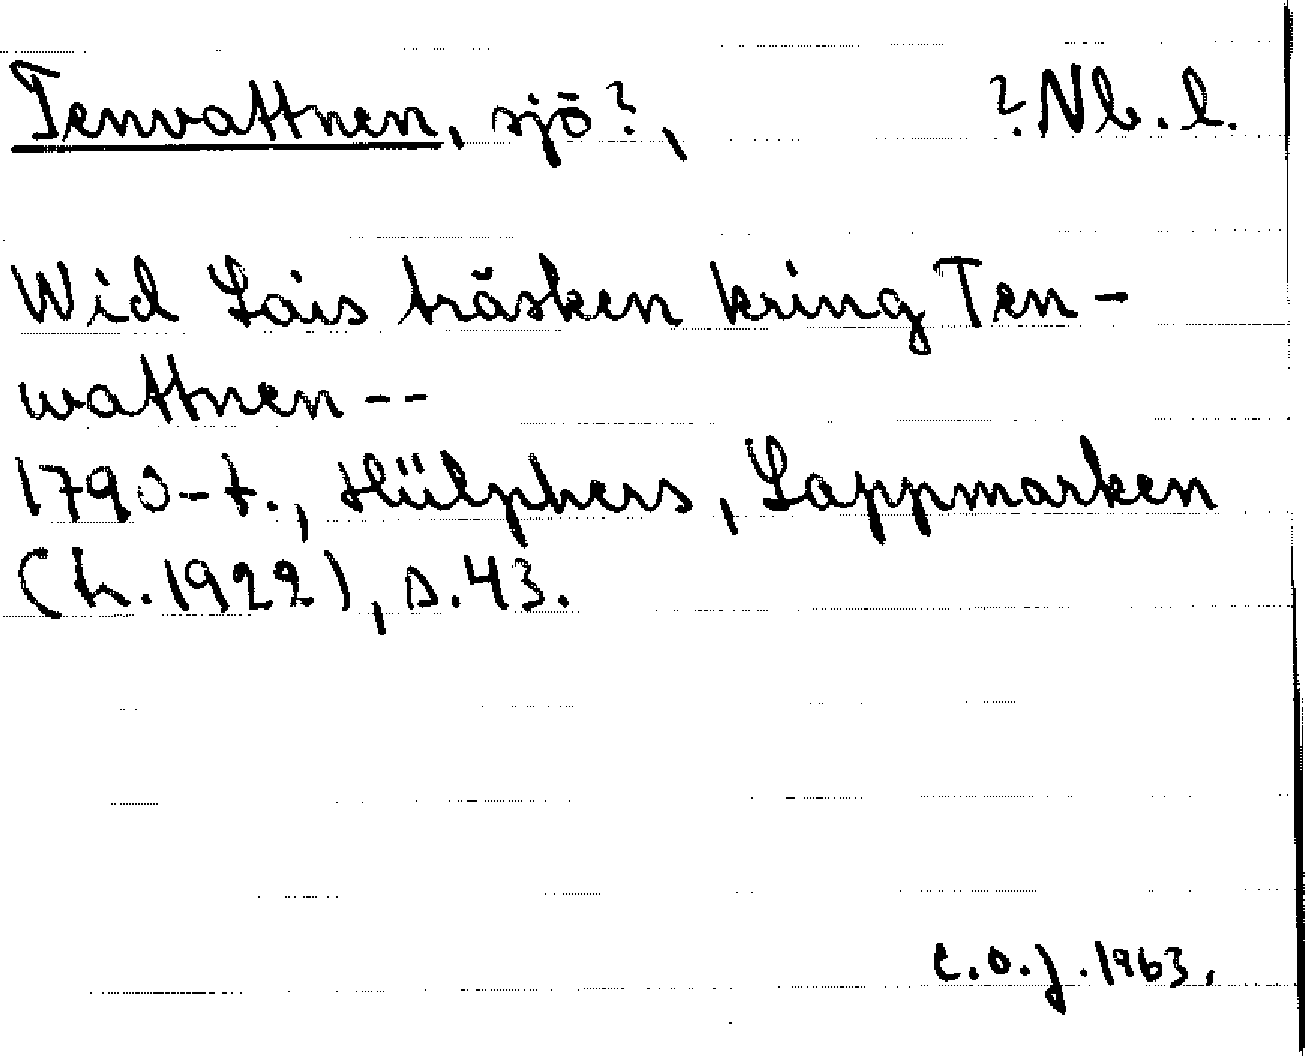 Tenvattnen, sjö?, ?Nb. l.
Wid Lais träsken kring Ten-
wattnen--
1790-t., Hülphers, Lappmarken
(tr. 1922), s. 43.
C.O.J. 1963.